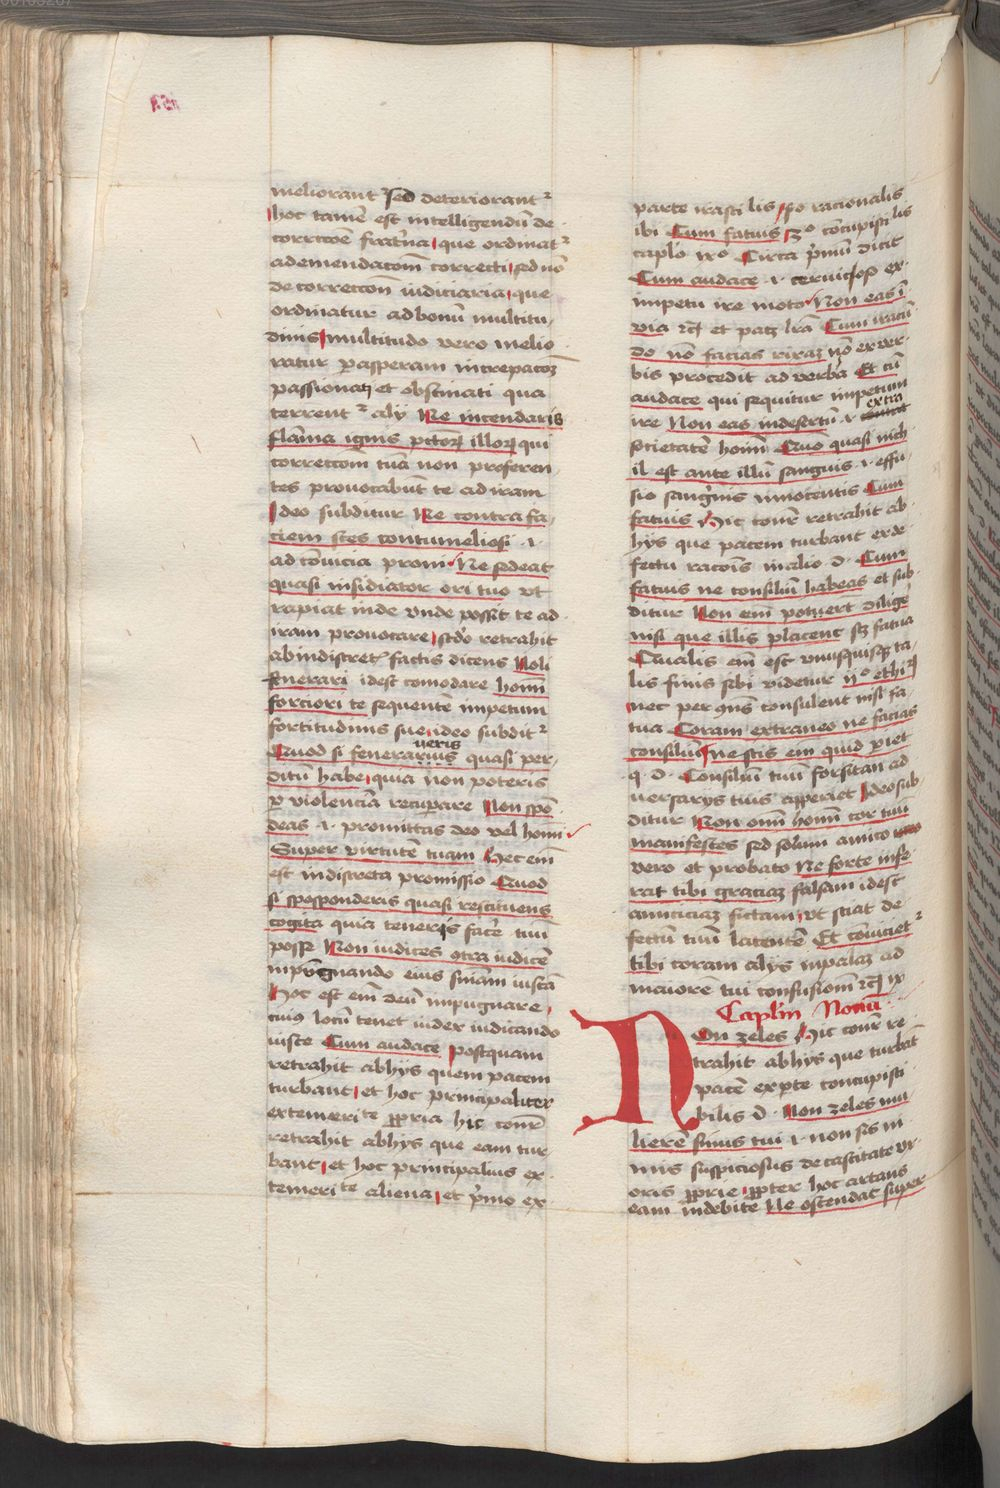 meliorant᷑ sed deteriorant᷑
hoc tamē est intelligendū de
correctōe frat̄na que ordinat᷑
ad emendacōm correcti sed nō
de correccōn iudiciaria que
ordinatur ad bonū multitu
dinis multitudo vero melio
ratur ꝑ asperam increpacōꝫ
passionatꝫ et obstinati qua
terrent᷑ alij Ne incendaris
flāma ignis pctōꝝ illoꝝ qui
correctōm tuā non proferen
tes provocabūt te ad iram
Ideo subditur Ne contra fa
ciem stes contumeliosi .i.
ad cōuicia proni Ne sedeat
quasi insidiator ori tuo vt
rapiat inde vnde possit te ad
iram provocare scd̄o retrahit
ab indiscret᷑ factis dicens Noli
fenerari idest comodare homī
forciori te sequentē impetum
fortitudinis sue ideo subdit᷑
ueris
Quod si fenerarius quasi per
ditū habe quia non poteris
ꝑ violenciā recuperare Non spō
deas .i. promittas deo vel homī
Super virtutē tuam Hec em̄
est indiscreta promissio Quod
si spoponderis quasi restituens
cogita quia teneris facē tuū
posse Non iudices otra iudicē
inpūgnando eius sniam iustā
Hoc est em̄ deū impugnare
cuiꝰ locū tenet iudex iudicando
iuste Cum audace postquam
retrahit ab hijs quem pacem
turbant et hoc principaliter
ex temeri te ꝓpria hic conr̄
retrahit ab hijs que eam tur
bant et hoc principalius ex
temeri te aliena et p̄mo ex
parte irasci lis 2o racionalis
ibi Cum fatuis 3o cōcupisci lis
caplo ixo Circa p̄mū dicit
Cum audace .i. ceruicoso ex
impetu ire moto Non eas ī
via rc̄ et patꝫ lrā Cum iracū
do nō facias rixaꝫ nō ex ver
bis procedit ad verba Et cū
audace qui sequitur impetum
extra
ire Non eas in desertū .i.
societatē hom̄ Quo quasi nich
il est ante illū sanguis .i. effu
sio sanḡnis innocentis Cum
fatuis Hic conr̄ retrahit ab
hijs que pacem turbant ex de
fectu racōis in alio d. Cum
fatuis ne consiliū habeas et sub
ditur Non em̄ potuert̄ diligē
nisi que illis placent sꝫ fatua
Qualis em̄ est vnusquisqꝫ ta
lis finis sibi videtur ijo ethiꝝ
nec per 9ns consulent nisi fa
tua Coram extraneo ne facias
consiliū ne scis em̄ quid pͥet
q. d. Consiliū tuū forsitan ad
uersarijs tuis apperiet Ideo sub
ditur Non omī homī cor tuū
manifestes sed solum amico
vero et probato Ne forte infe
rat tibi graciaꝫ falsam idest
amiciciaꝫ fictam vt sciat de
fectū tuū latentē Et cōuiciet᷑
tibi coram alijs in palaꝫ ad
maiorē tui confusionm̄ rc̄ ix
Caplm̄ Nonū
Non zeles Hic conr̄ re
trahit ab hijs que turbāt
pacē ex ꝑte concupisci
bilis d. Non zeles mu
lierē sinus tui .i. non sis ni
mis suspiciosus de castitate vx
oris ꝓprie ꝓpter hoc artans
eam indebite Ne ostendat super